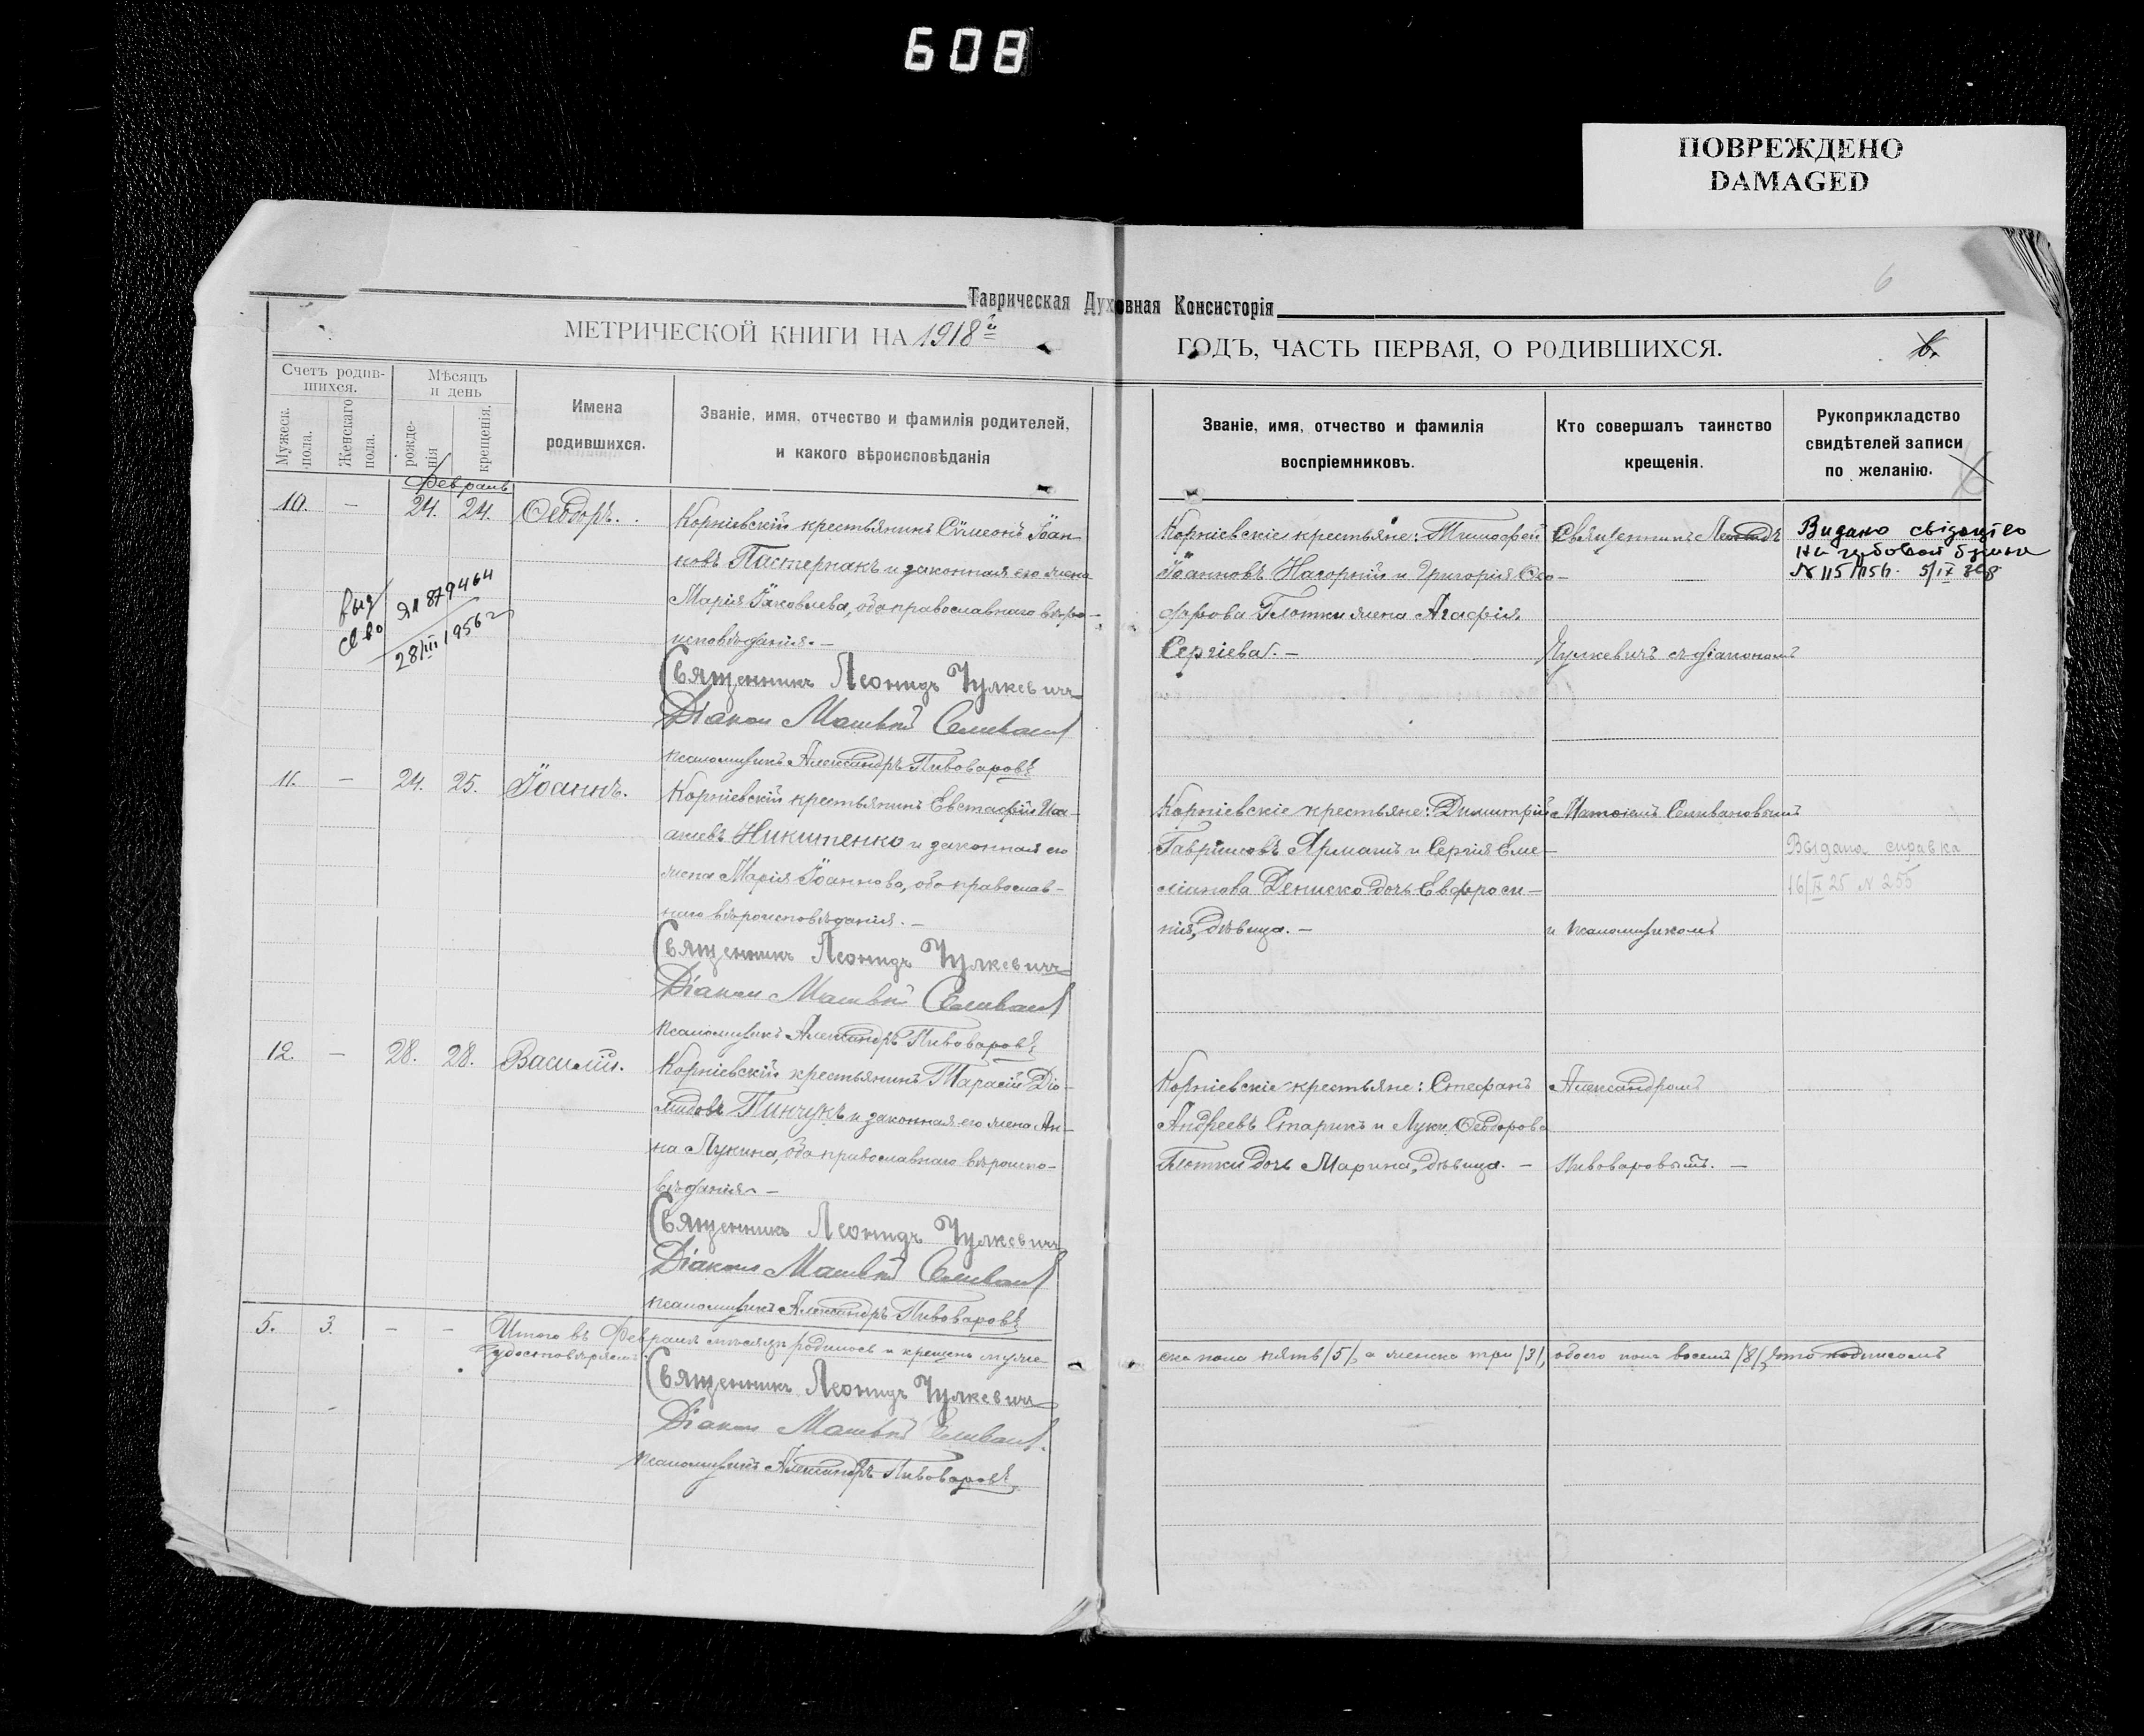 608
ПОВРЕЖДЕНО
DAMAGED
6
Таврическая Духовная Консисторія
МЕТРИЧЕСКОЙ КНИГИ НА 1918й
ГОДЪ, ЧАСТЬ ПЕРВАЯ, О РОДИВШИХСЯ.
Счетъ родив-
шихся.
Мужеск. пола.
Женскаго пола.
Мѣсяцъ
и день
рожде-
нія
крещенія.
Имена
родившихся.
Званіе, имя, отчество и фамилія родителей,
и какого вѣроисповѣданія
Званіе, имя, отчество и фамилія
воспріемниковъ.
Кто совершалъ таинство
крещенія.
Рукоприкладство
свидѣтелей записи
по желанію.
Февраль
10. — 24. 24. Ѳеодоръ.
Корніевскій крестьянинъ Сѵмеонъ Іоан-
новъ Пастернакъ и законная его жена
Марія Іаковлева, оба православнаго вѣро-
исповѣданія. —
Священникъ Леонидъ Чулкевичъ
Діаконъ Матвѣй Селиванов
псаломщикъ Александръ Пивоваровъ
выд
св во
28/III 1956 г
Корніевскіе крестьяне: Тимофей
Іоанновъ Нагорній и Григорія
жена Агафія
Сергіева. —
Священникъ Леонидъ
Чулкевичъ съ діакономъ
Видано свідоцтво
5/IX
11. — 24. 25. Іоаннъ.
Корніевскій крестьянинъ Евстафій Иса-
аковъ Никитенко и законная его
жена Марія Іоаннова, оба православ-
наго вѣроисповѣданія. —
Священникъ Леонидъ Чулкевичъ
Діаконъ Матвѣй Селиванов
псаломщикъ Александръ Пивоваровъ
Корніевскіе крестьяне: Димитрій
Гавриловъ Ярмакъ и Сергія Еме-
ліанова Дениско дочь Евфроси-
нія, дѣвица. —
Матѳеемъ Селивановымъ
и псаломщикомъ
Выдана справка
16/X 25 N 255
12. — 28. 28. Василій.
Корніевскій крестьянинъ Тарасій Діо-
мидовъ Пинчукъ и законная его жена Ан-
на Лукина, оба православнаго вѣроиспо-
вѣданія. —
Священникъ Леонидъ Чулкевичъ
Діаконъ Матвѣй Селиванов
псаломщикъ Александръ Пивоваровъ
Корніевскіе крестьяне: Стефанъ
Андреевъ Старикъ и Луки Ѳеодорова
Глотки дочь Марина, дѣвица. —
Александромъ
Пивоваровымъ. —
5. 3. — — Итого въ Февралѣ мѣсяцѣ родилось и крещено муже-
ска пола пять /5/, а женска три /3/, обоего пола восемь /8/, что подписомъ
удостовѣряемъ:
Священникъ Леонидъ Чулкевичъ
Діаконъ Матвѣй Селиванов.
псаломщикъ Александръ Пивоваровъ